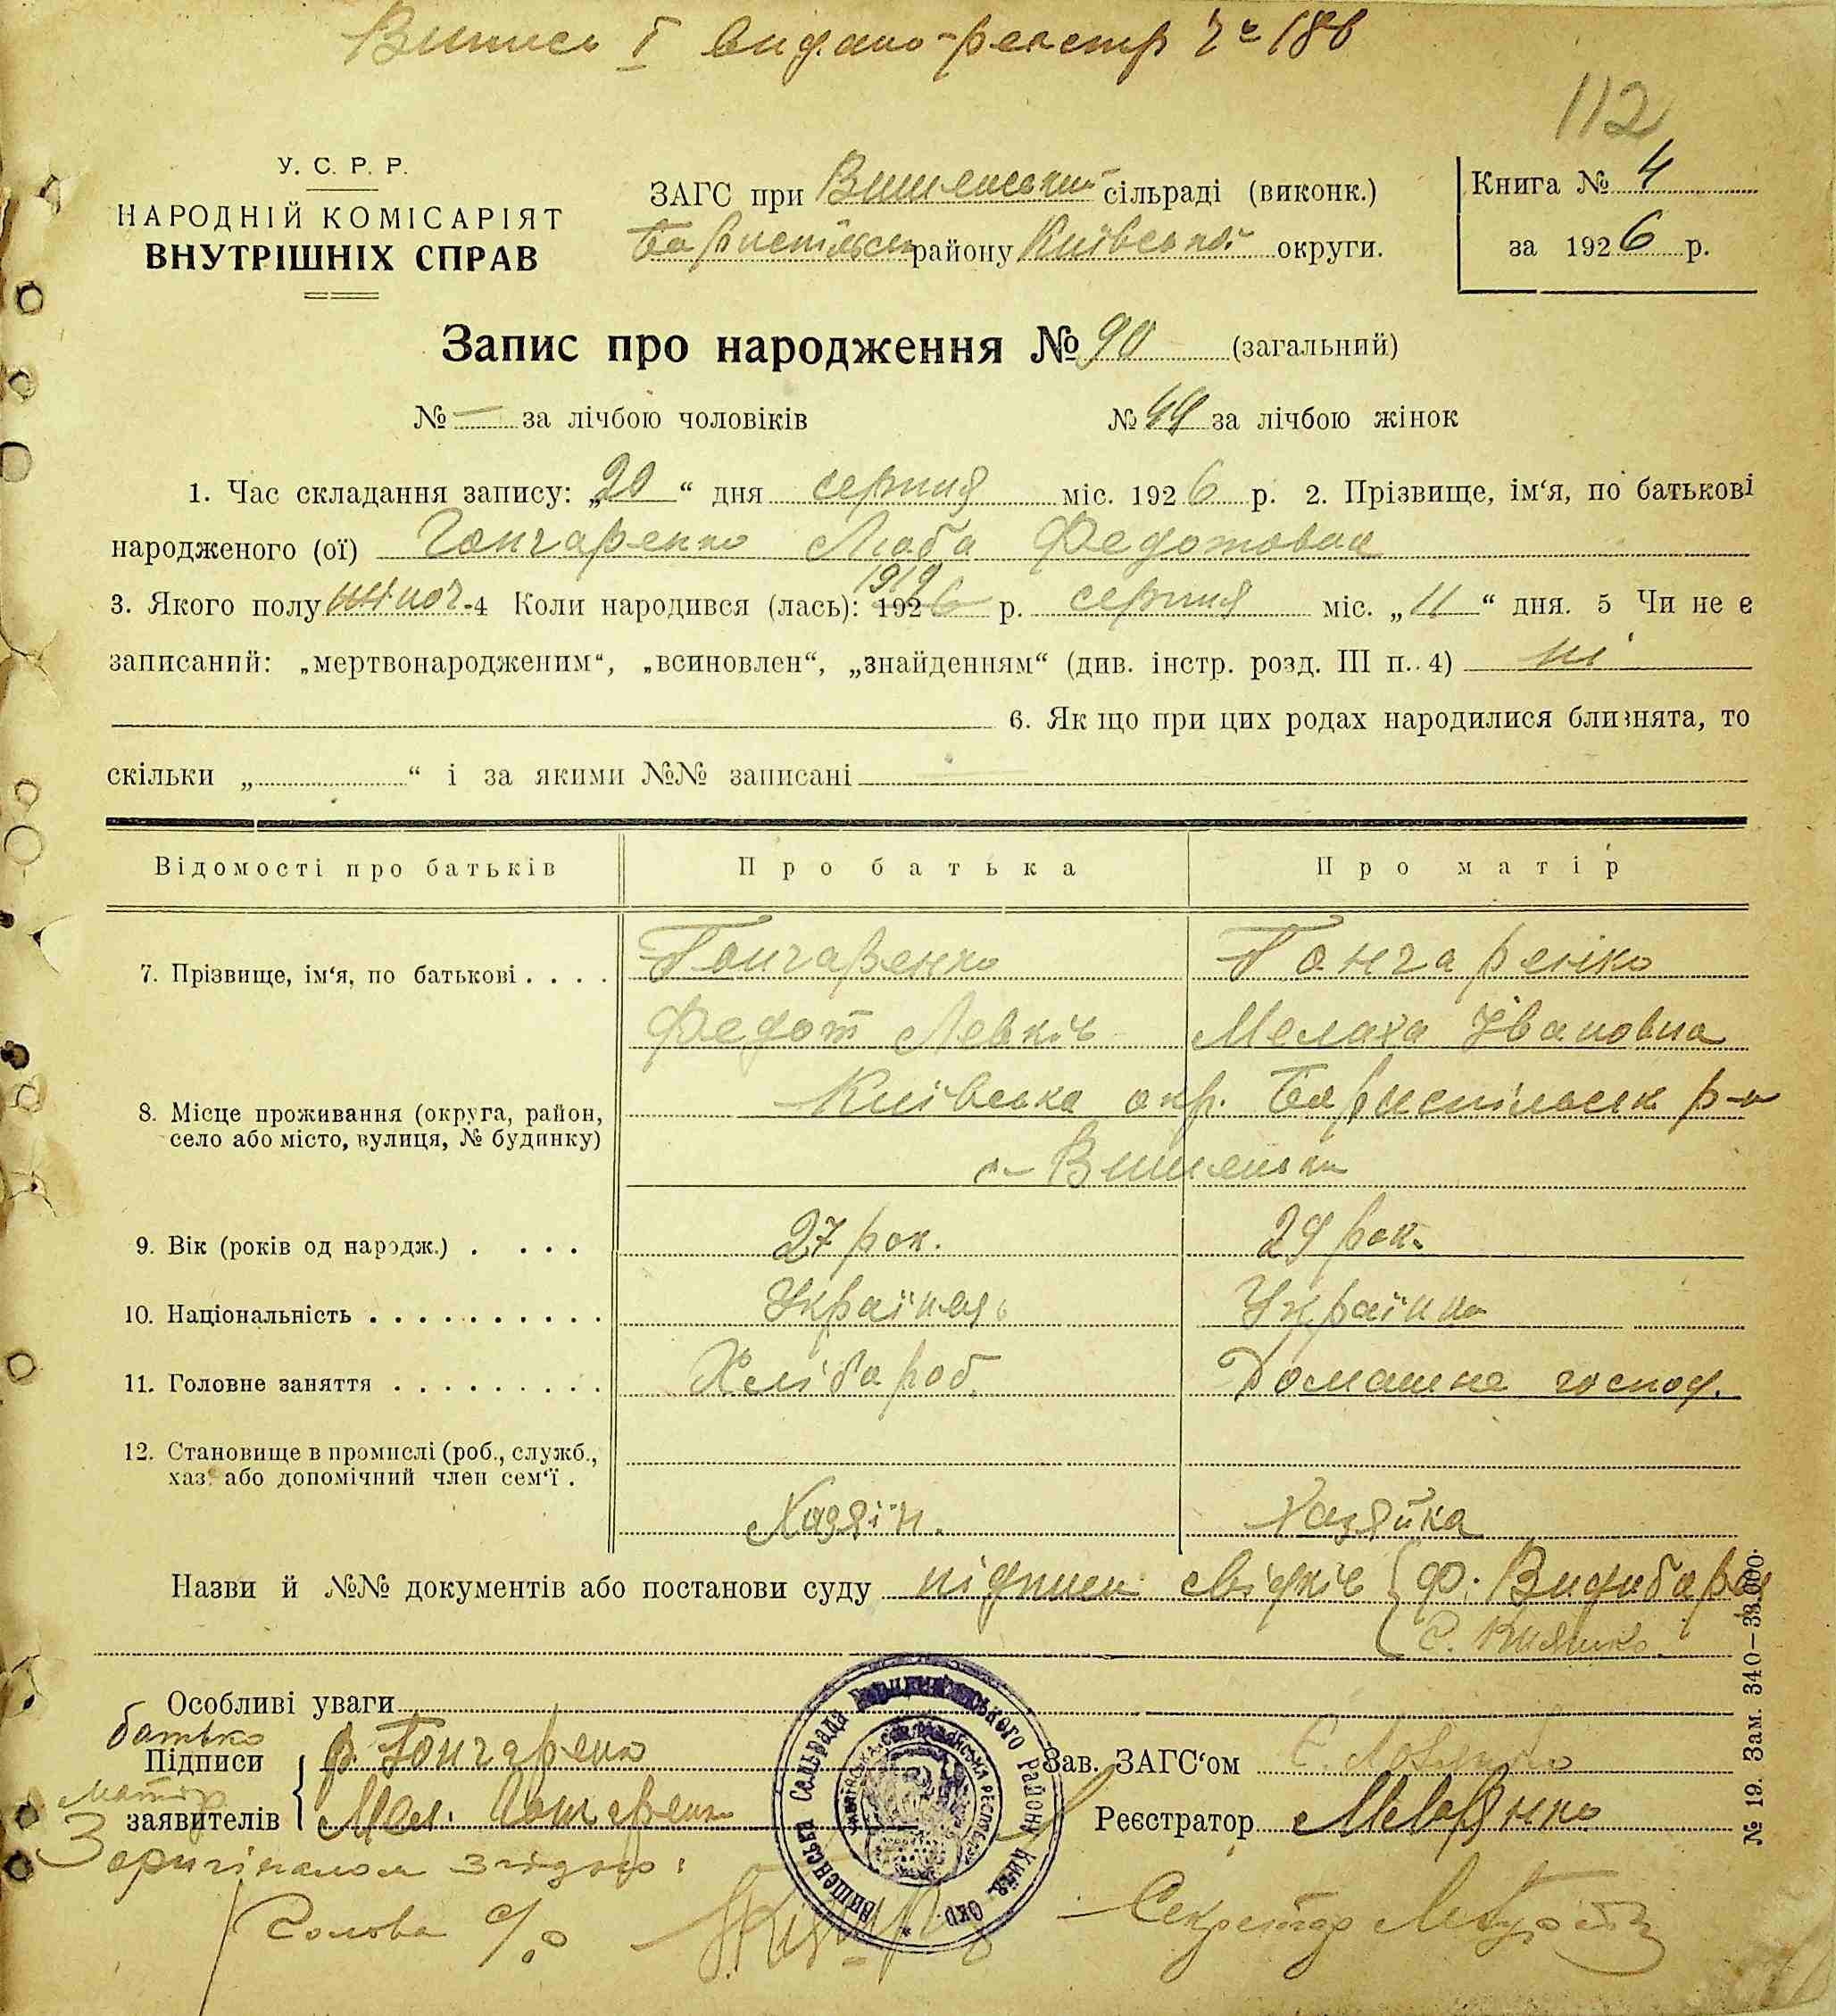 Випись І видано - реєстр № 186
112
У. С. Р. Р.
НАРОДНІЙ КОМІСАРІЯТ
ВНУТРІШНІХ СПРАВ
ЗАГС при Вишеньській сільраді (виконк.)
Бориспільськ району Київської округи.
Книга № 4
за 1926 р.
Запис про народження № 90 (загальний)
№ — за лічбою чоловіків № 44 за лічбою жінок
1. Час складання запису: „20“ дня серпня міс. 1926 р. 2. Прізвище, ім‘я, по батькові
народженого (ої) Гончаренко Люба Федотовна
3. Якого полу жіноч. 4 Коли народився (лась): 1919 1926 р. серпня міс. „11“ дня. 5 Чи не є
записаний: „мертвонародженим“, „всиновлен“, „знайденням“ (див. інстр. розд. III п. 4) ні
6. Як що при цих родах народилися близнята, то
скільки „ “ і за якими №№ записані
Відомості про батьків Про батька Про матір
7. Прізвище, ім‘я, по батькові . . . . Гончаренко Гончаренко
Федот Левків Мелаха Івановна
8. Місце проживання (округа, район, Київська окр. Бориспільськ р-н
село або місто, вулиця, № будинку)
с. Вишеньки
9. Вік (років од народж.) . . . . 27 рок. 29 рок.
10. Національність . . . . . . . . . . Українець Українка
11. Головне заняття . . . . . . . . . Хлібороб. Домашнє господ.
12. Становище в промислі (роб., служб.,
хаз. або допомічний член сем‘ї .
Хазяїн. Хазяйка
Назви й №№ документів або постанови суду підписи свідків { Ф. Видибора
С.
Особливі уваги
батько
Підписи Ф. Гончаренко Зав. ЗАГС‘ом
матір
заявителів Мел. Гончаренко Реєстратор
З оригіналом згідно:
Голова с/р Секретар
Вишенська Сельрада Району Київ. Окр.
№ 19. Зам. 340—33.000.